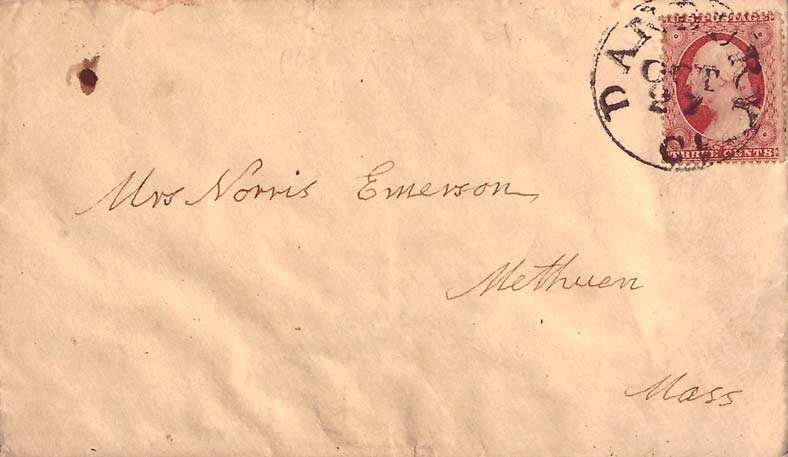 DANBURY
OCT
Ct.
THREE CENTS
Mrs Norris Emerson
Methuen
Mass